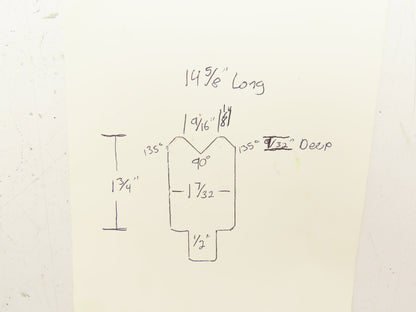 14 5/8" Long
9/16"
135°
135°
9/32" Deep
90°
1 3/4"
1 7/32
1/2"